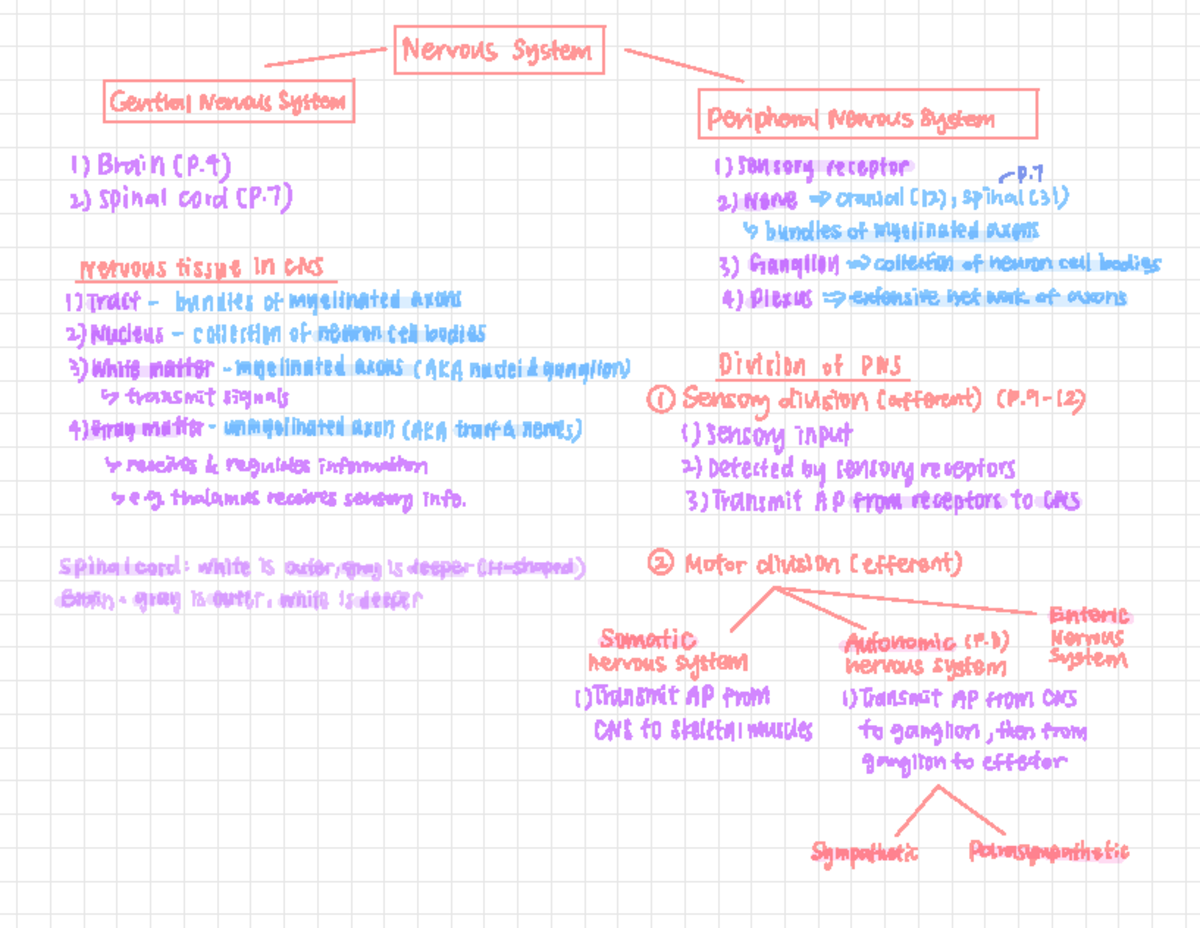 Nervous System
Central Nervous System
1) Brain (P.4)
2) Spinal cord (P.7)
Nervous tissue in CNS
1) Tract – bundles of myelinated axons
2) Nucleus – collection of neuron cell bodies
3) White matter – myelinated axons (AKA nuclei & ganglion)
↳ transmit signals
4) Gray matter – unmyelinated axon (AKA tract & nerves)
↳ receives & regulates information
↳ e.g. thalamus receives sensory info.
Spinal cord: white is outer, gray is deeper (H-shaped)
Brain - gray is outer, white is deeper
Peripheral Nervous System
1) Sensory receptor
P.7
2) Nerve ⇒ cranial (12), spinal (31)
↳ bundles of myelinated axons
3) Ganglion ⇒ collection of neuron cell bodies
4) Plexus ⇒ extensive network of axons
Division of PNS
① Sensory division (afferent) (P.9-12)
1) sensory input
2) Detected by sensory receptors
3) Transmit AP from receptors to CNS
② Motor division (efferent)
Somatic
nervous system
1) Transmit AP from
CNS to skeletal muscles
Autonomic (P.8)
nervous system
1) Transmit AP from CNS
to ganglion, then from
ganglion to effector
Enteric
Nervous
System
Sympathetic
Parasympathetic